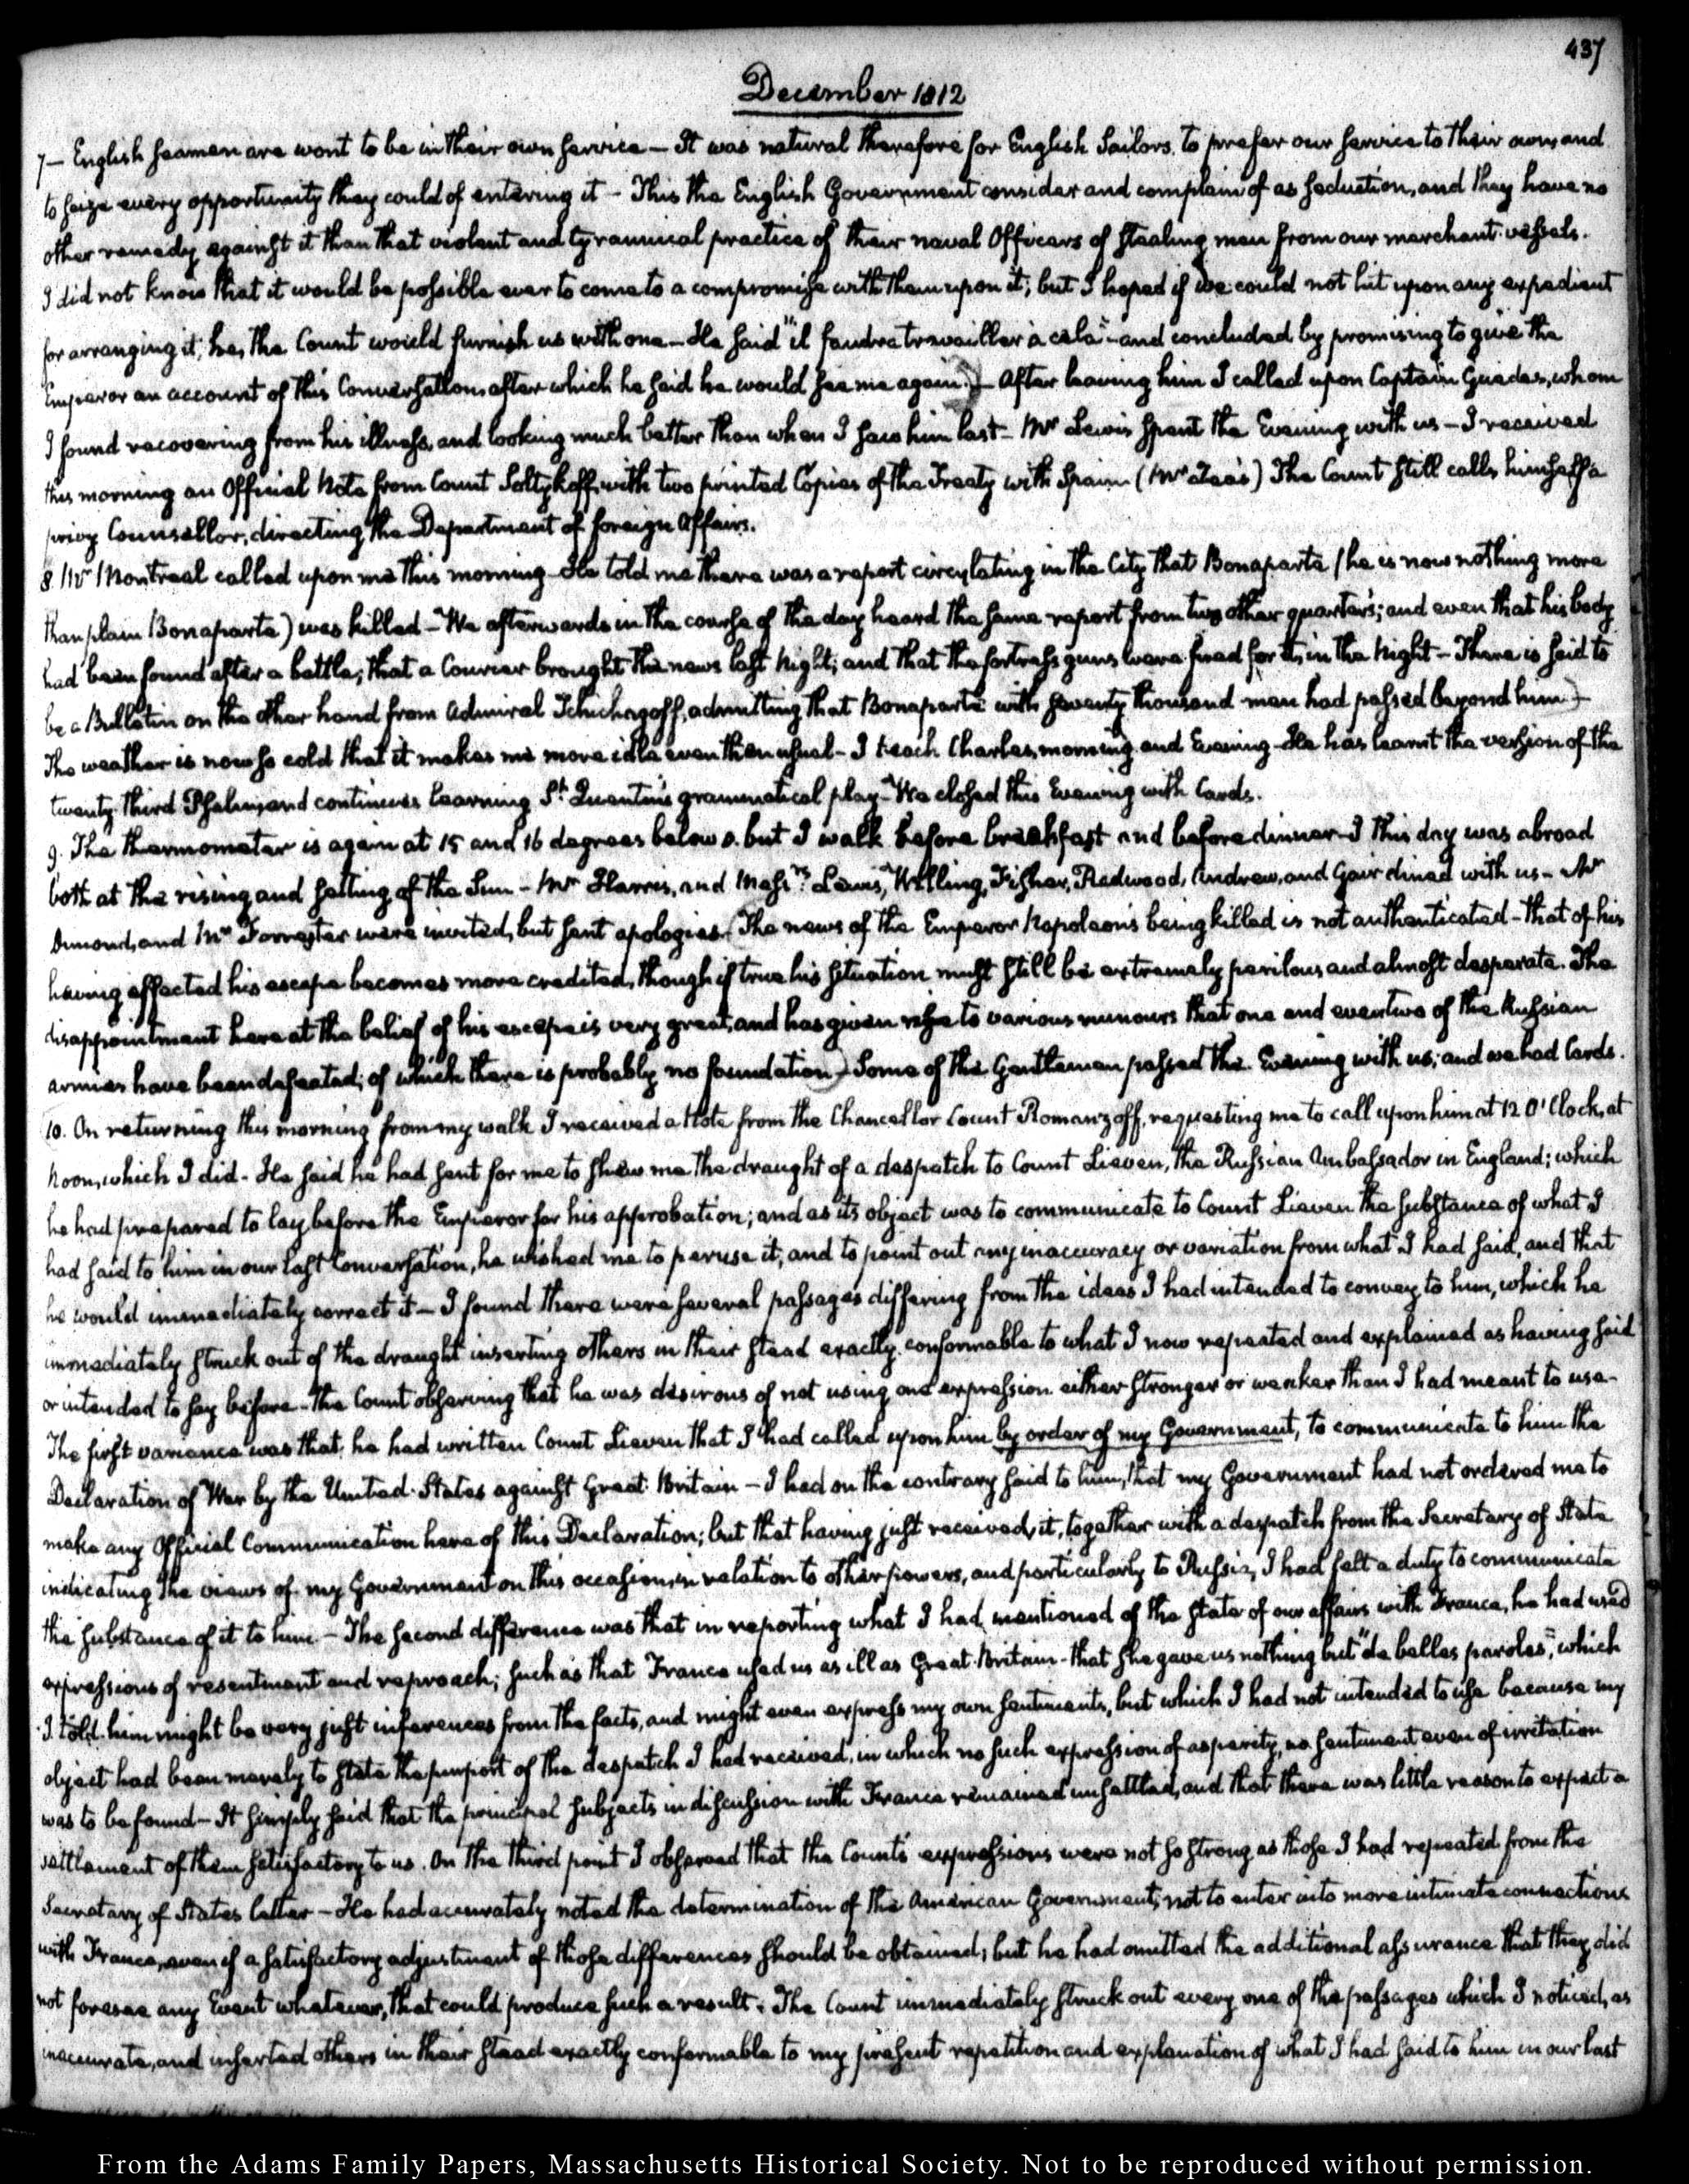 437
December 1812
7— English seamen are wont to be in their own service — It was natural therefore for English Sailors, to prefer our service to their own, and
to seize every opportunity they could of entering it — This the English Government consider and complain of as seduction, and they have no
other remedy against it than that violent and tyrannical practice of their naval Officers of stealing men from our merchant vessels.
I did not know that it would be possible ever to come to a compromise with them upon it; but I hoped if we could not hit upon any expedient
for arranging it, he, the Count would furnish us with one — He said "il faudra travailler à cela" — and concluded by promising to give the
Emperor an account of this Conversation, after which he said he would see me again.) — After leaving him I called upon Captain Guedes, whom
I found recovering from his illness, and looking much better than when I saw him last — Mr Lewis spent the Evening with us — I received
this morning an Official Note from Count Soltykoff, with two printed Copies of the Treaty with Spain (Mr Zea's) The Count still calls himself a
privy Counsellor, directing the Department of foreign Affairs.
8 Mr Montreal called upon me this morning — He told me there was a report circulating in the City that Bonaparte (he is now nothing more
than plain Bonaparte) was killed — We afterwards in the course of the day heard the same report from two other quarters; and even that his body
had been found after a battle; that a Courier brought the news last Night; and that the fortress guns were fired for it, in the Night — There is said to
be a Bulletin on the other hand from Admiral Tchichagoff, admitting that Bonaparte with seventy thousand men had passed beyond him) —
The weather is now so cold that it makes me more idle even than usual — I teach Charles, morning and Evening — He has learnt the version of the
twenty-third Psalm, and continues learning St Quentin's grammatical play — We closed this Evening with Cards.
9. The thermometer is again at 15 and 16 degrees below 0. but I walk before breakfast and before dinner — I this day was abroad
both at the rising and setting of the Sun — Mr Harris, and Messrs Lewis, Willing, Fisher, Redwood, Andrew, and Gair dined with us — Mr
Dimond, and Mr Forrester were invited, but sent apologies — The news of the Emperor Napoleon's being killed is not authenticated — that of his
having effected his escape becomes more credited, though if true his situation must still be extremely perilous and almost desperate. The
disappointment here at the belief of his escape is very great, and has given rise to various rumours that one and even two of the Russian
armies have been defeated; of which there is probably no foundation) — Some of the Gentlemen passed the Evening with us; and we had Cards.
10. On returning this morning from my walk I received a Note from the Chancellor Count Romanzoff, requesting me to call upon him at 12 O'Clock, at
Noon, which I did — He said he had sent for me to shew me the draught of a despatch to Count Lieven, the Russian Ambassador in England; which
he had prepared to lay before the Emperor for his approbation; and as its object was to communicate to Count Lieven the substance of what I
had said to him in our last Conversation, he wished me to peruse it, and to point out any inaccuracy or variation from what I had said, and that
he would immediately correct it — I found there were several passages differing from the ideas I had intended to convey to him, which he
immediately struck out of the draught inserting others in their stead exactly conformable to what I now repeated and explained as having said
or intended to say before — the Count observing that he was desirous of not using one expression either stronger or weaker than I had meant to use —
The first variance was that he had written Count Lieven that I had called upon him by order of my Government, to communicate to him the
Declaration of War by the United States against Great Britain — I had on the contrary said to him, that my Government had not ordered me to
make any Official Communication here of this Declaration; but that having just received it, together with a despatch from the Secretary of State
indicating the views of my Government on this occasion, in relation to other powers, and particularly to Russia, I had felt a duty to communicate
the substance of it to him — The second difference was that in reporting what I had mentioned of the state of our affairs with France, he had used
expressions of resentment and reproach; such as that France used us as ill as Great Britain — that she gave us nothing but "de belles paroles", which
I told him might be very just inferences from the facts, and might even express my own sentiments, but which I had not intended to use because my
object had been merely to state the purport of the despatch I had received, in which no such expression of asperity, no sentiment even of irritation
was to be found — It simply said that the principal subjects in discussion with France remained unsettled, and that there was little reason to expect a
settlement of them satisfactory to us. On the third point I observed that the Count's expressions were not so strong as those I had repeated from the
Secretary of States letter — He had accurately noted the determination of the American Government, not to enter into more intimate connections
with France, even if a satisfactory adjustment of those differences should be obtained; but he had omitted the additional assurance that they did
not foresee any Event whatever, that could produce such a result. The Count immediately struck out every one of the passages which I noticed, as
inaccurate, and inserted others in their stead exactly conformable to my present repetition and explanation of what I had said to him in our last
From the Adams Family Papers, Massachusetts Historical Society. Not to be reproduced without permission.